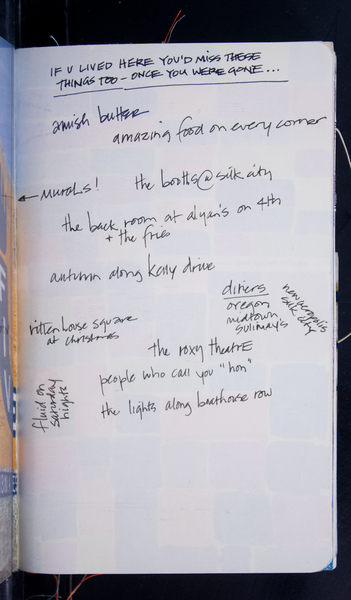 IF U LIVED HERE YOU'D MISS THESE
THINGS TOO - ONCE YOU WERE GONE...
amish butter
amazing food on every corner
← MURALS!
the booths @ silk city
the back room at alyan's on 4th
+ the fries
autumn along kelly drive
diners
oregon
midtown
sulimays
new acropolis
silk city
rittenhouse square
at christmas
the roxy theatre
people who call you "hon"
fluid on
saturday
nights
the lights along boathouse row